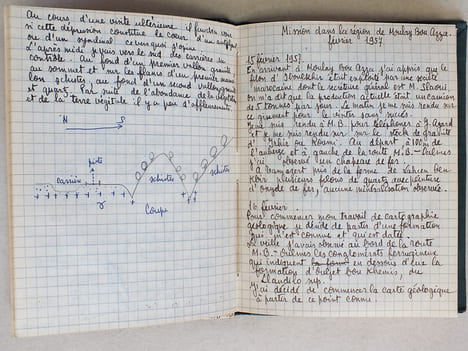 Au cours d'une visite ultérieure il faudra voir
si cette dépression constitue le cœur d'un anticlinal
ou d'un synclinal
L'après midi je suis vers le sud des carrières en
contrôle. Au fond d'un premier vallon granite
au sommet et sur les flancs d'un premier
schistes au fond d'un second vallon granite
et quartz. Par suite de l'abondance de la végétation
et de la terre végétale il y a peu d'affleurements
N S
piste
carrière
schistes
schistes
γ
Coupe
Mission dans la région de Moulay Bou Azza.
février 1957
15 février 1957.
En arrivant à Moulay Bou Azza j'ai appris que le
filon d' était exploité par une société
marocaine dont le secrétaire général est M. Slaoui
On m'a dit que la production était d'un camion
de 5 tonnes par jour. Le matin je me suis rendu sur
ce gisement pour le visiter sans succès.
Je me suis rendu à M.B. pour téléphoner à
et je me suis rendu sur le stock de
d' ou Koumi. Au départ, à 100m de
l'auberge et à gauche de la route M.B - Oulmès
j'ai observé un chapeau de fer.
A près de la ferme de
plusieurs filons de quartz avec teinture
d'oxyde de fer, aucune minéralisation observée.
16 février.
Pour commencer mon travail de cartographie
géologique je décide de partir d'une formation
qui m'est connue et qui est datée.
La veille j'avais observé au bord de la route
M.B.- Oulmès les conglomérats ferrugineux
qui indiquent en dessous d'eux la
formation d'Ouljet bou Khemis, du
Llandeilo sup.
J'ai décidé de commencer la carte géologique
à partir de ce point connu.